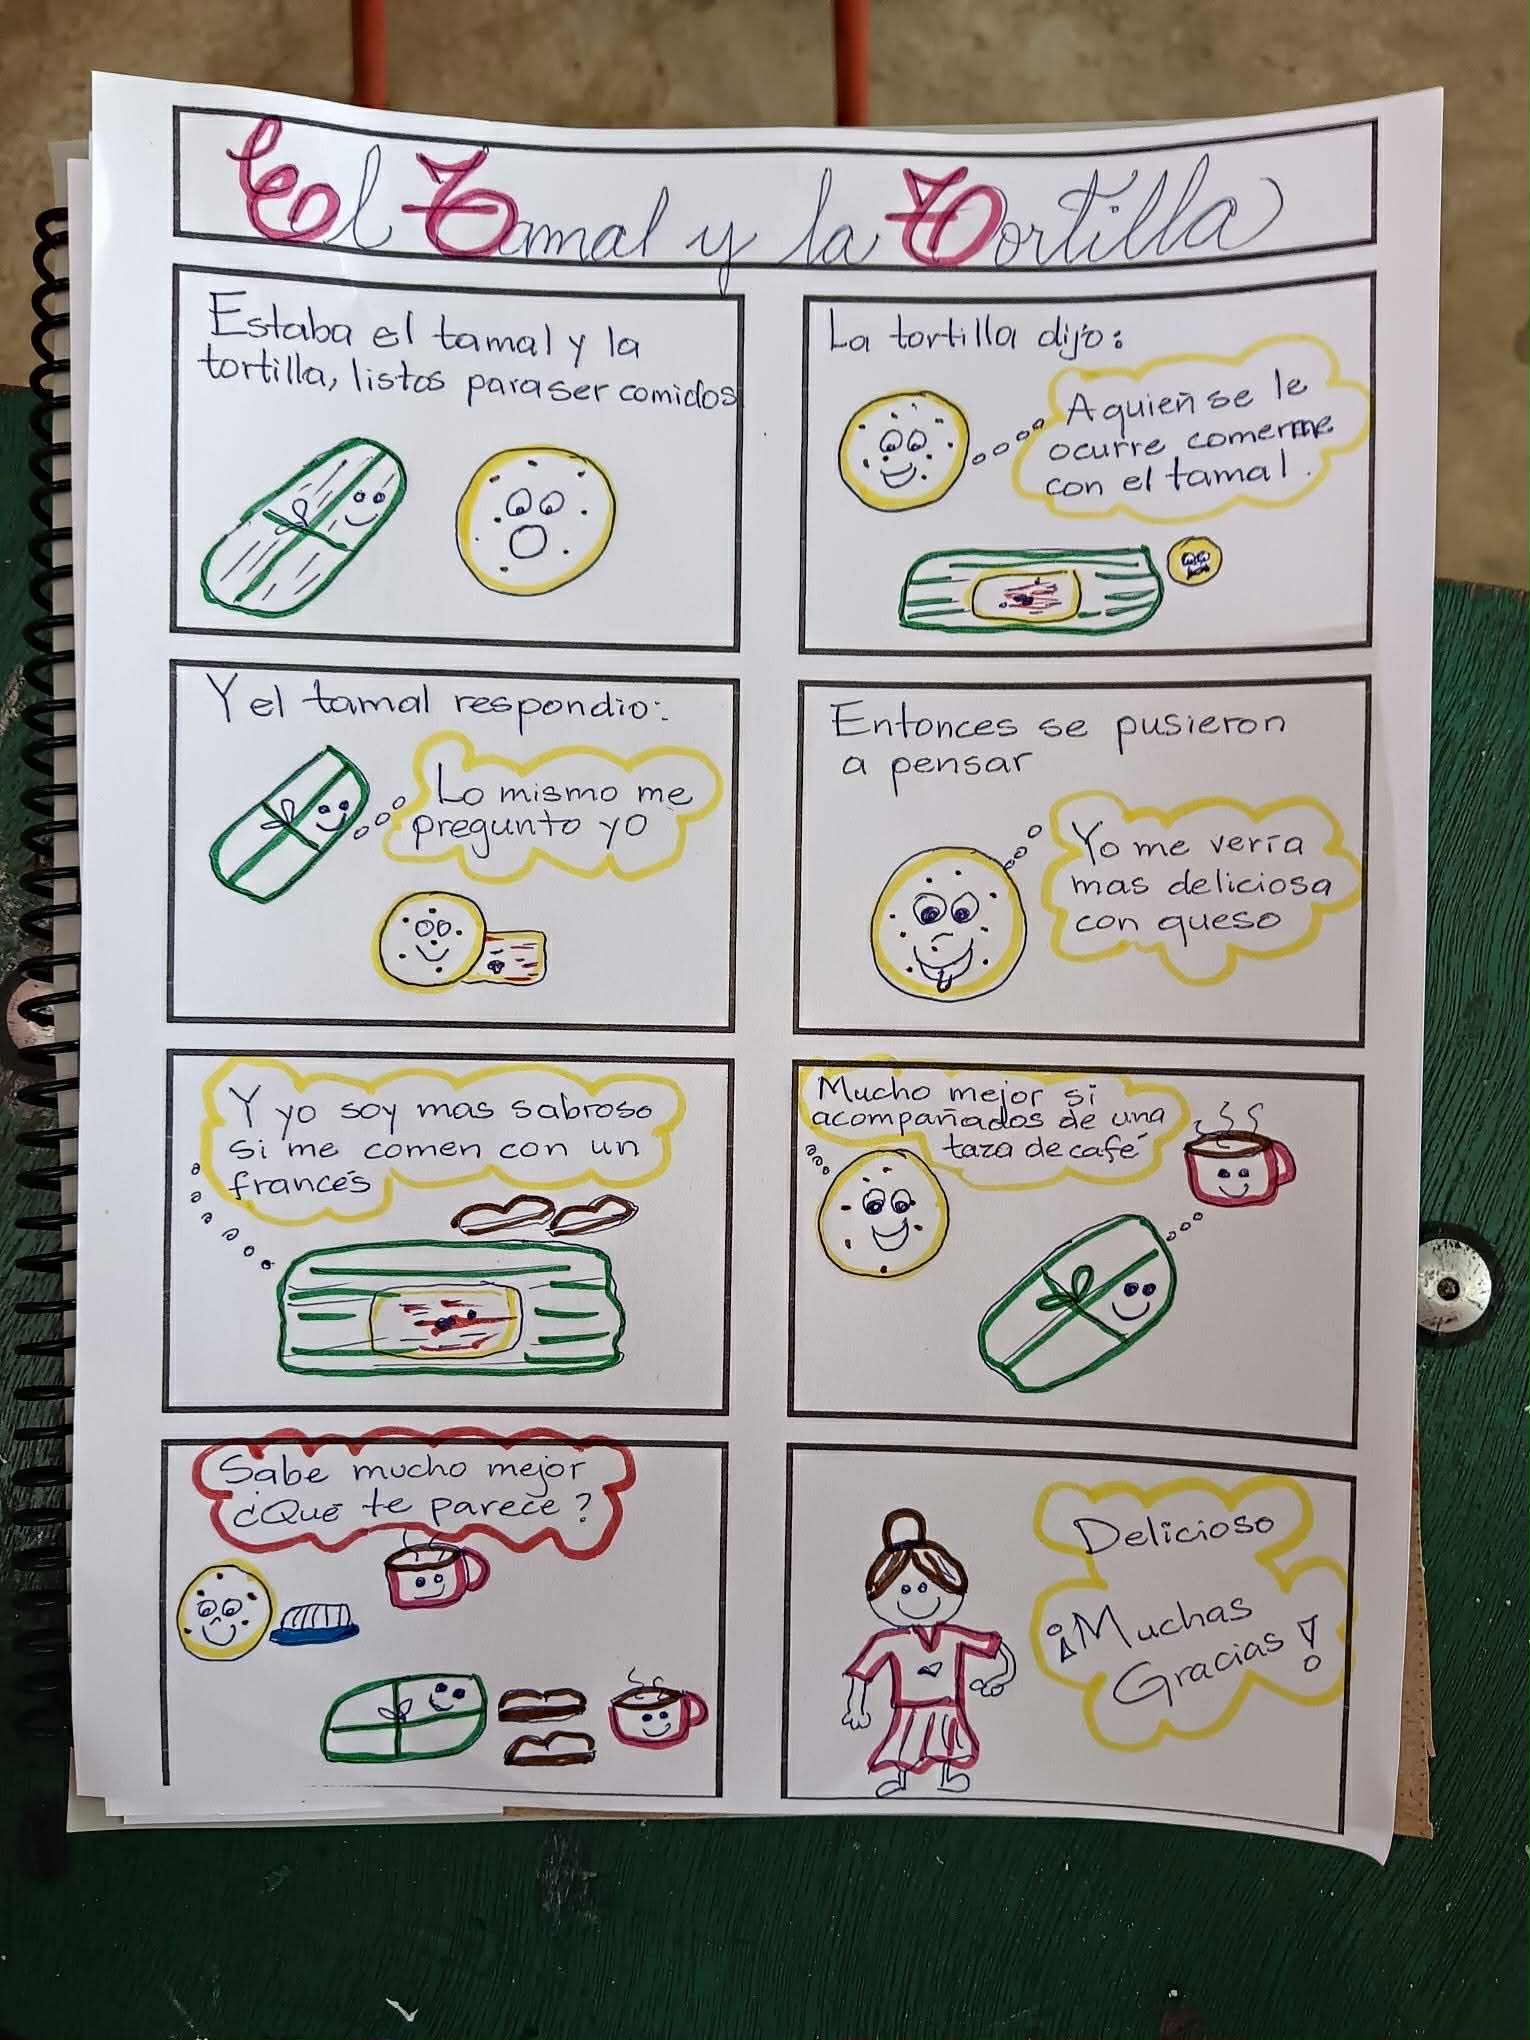 El Tamal y la Tortilla
Estaba el tamal y la
tortilla, listos para ser comidos
La tortilla dijo:
A quien se le
ocurre comerme
con el tamal.
Y el tamal respondio:
Lo mismo me
pregunto yo
Entonces se pusieron
a pensar
Yo me vería
mas deliciosa
con queso
Y yo soy mas sabroso
si me comen con un
francés
Mucho mejor si
acompañados de una
taza de café
Sabe mucho mejor
¿Qué te parece?
Delicioso
¡Muchas
Gracias!